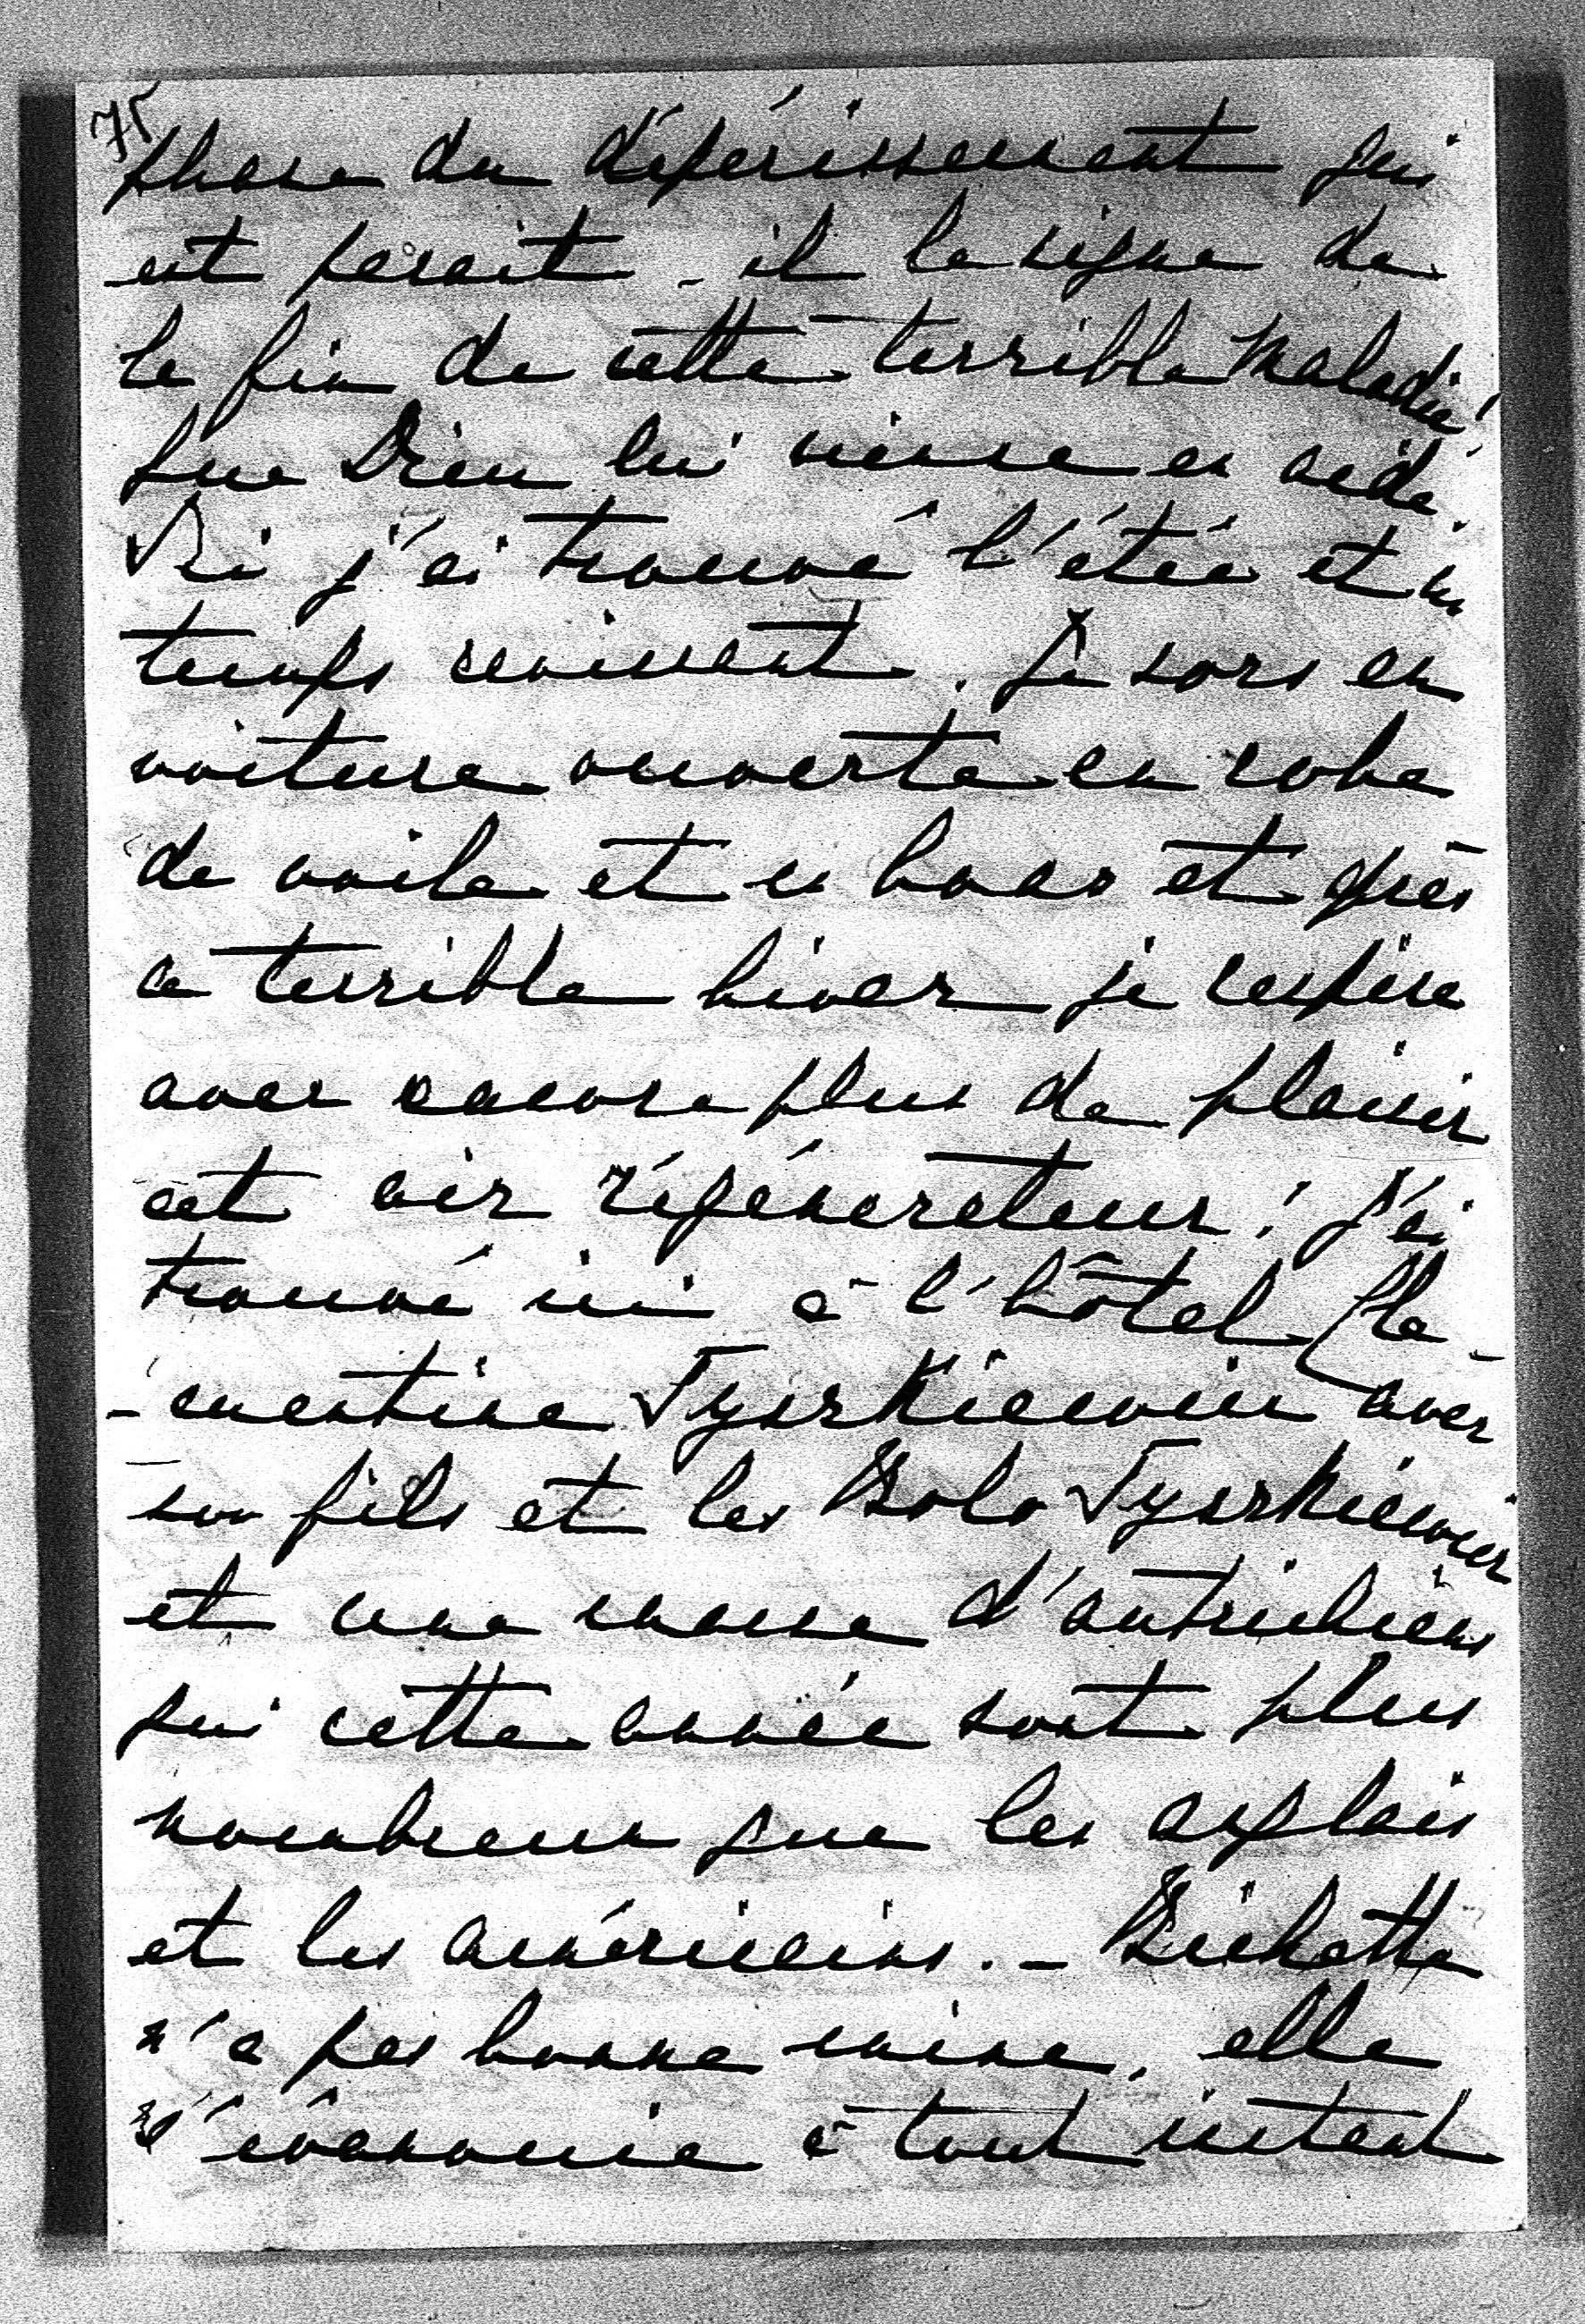 75
phase du dépérissement qui
est parait-il le signe de
la fin de cette terrible maladie!
Que Dieu lui vienne en aide.
Ici j'ai trouvé l'étée et un
temps ravissant. Je sors en
voiture ouverte en robe
de voile et en boas et après
ce terrible hiver je respire
avec encore plus de plaisir
cet air régénerateur! J'ai
trouvé ici à l'hôtel Cle-
-mentine Tyszkiewicz avec
son fils et les Bolo Tyszkiewicz
et une masse d'autrichiens
qui cette année sont plus
nombreux que les anglais
et les américains. - Bichette
n'a pas bonne mine, elle
s'évanouie à tout instant